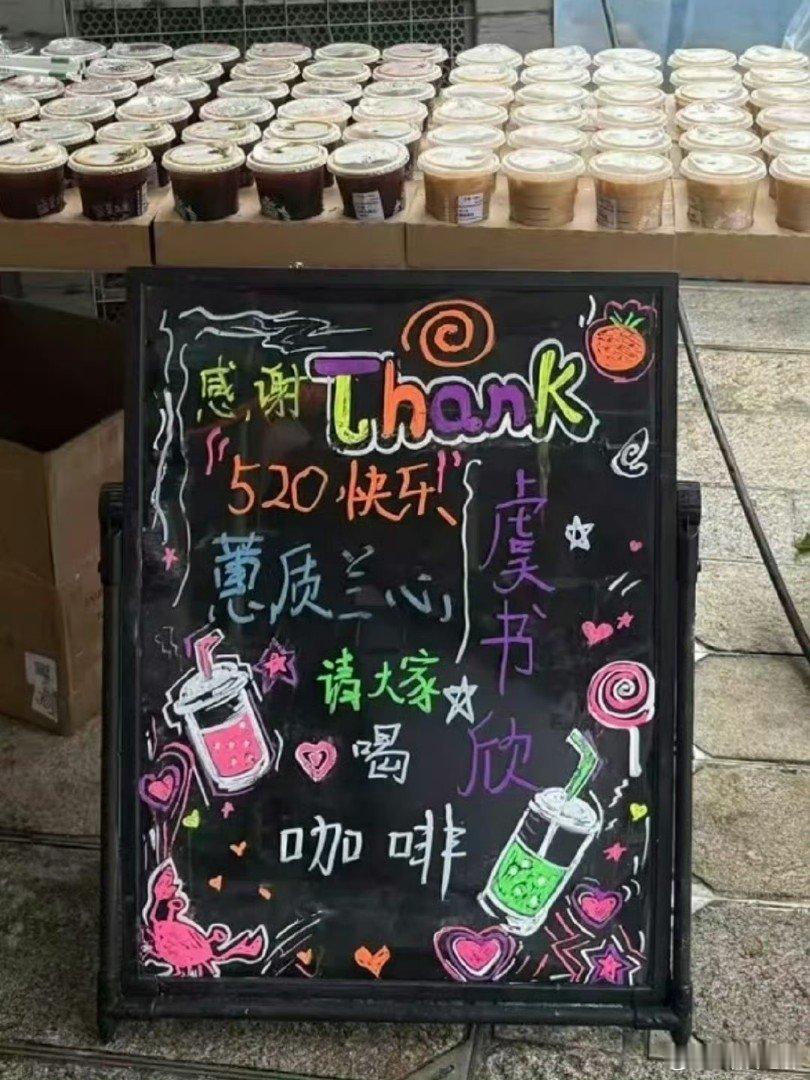 感谢 Thank
"520快乐!"
蕙质兰心
虞书欣
请大家
喝
咖啡